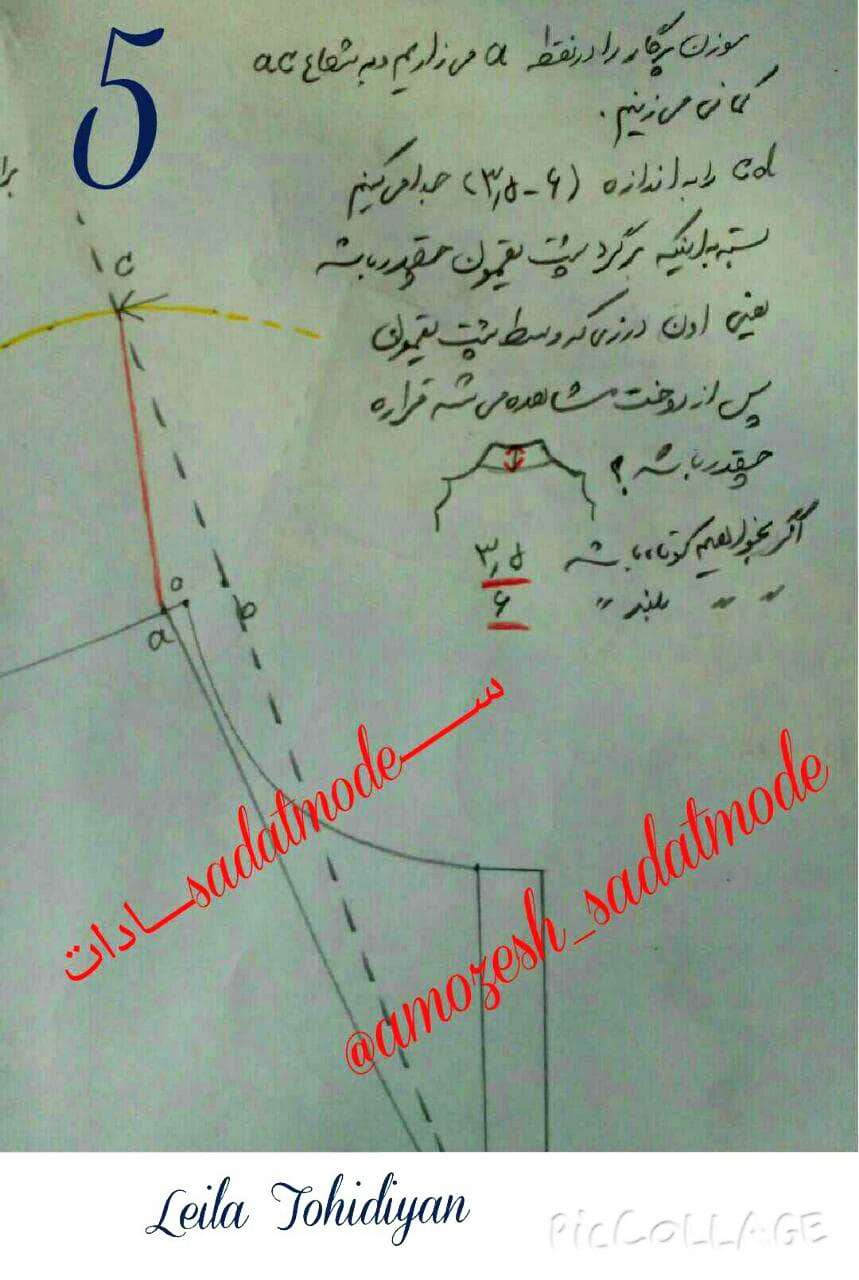 5
سوزن پرگار را در نقطه a می زاریم و به شعاع ac
کمانی می زنیم.
cd را به اندازه (۶-۳٫۵) جدا می کنیم
بسته به اینکه برگرد پشت یقمون چقدر باشه
یعنی اون درزی که وسط پشت یقمون
پس از دوخت مشاهده می شه قراره
چقدر باشه؟
اگر بخواهیم کوتاه باشه ۳٫۵
〃 〃 بلند 〃 ۶
برا
c
o
a
b
ســـــادات sadatmode
@amozesh_sadatmode
Leila Tohidiyan
PicCollage